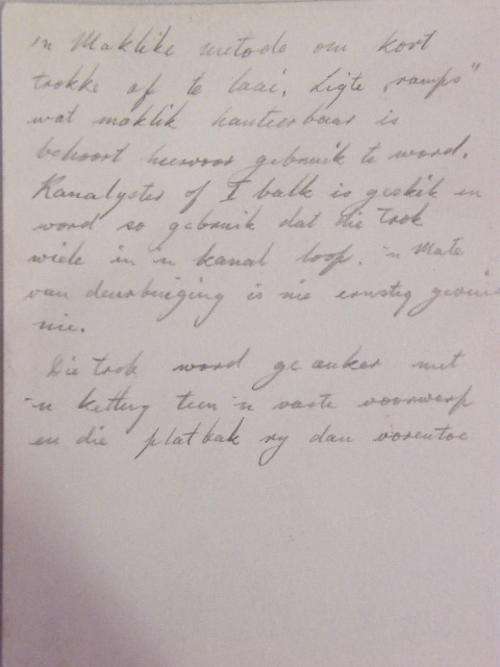 'n Maklike metode om kort
trokke af te laai. Ligte „ramps"
wat maklik hanteerbaar is
behoort hiervoor gebruik te word.
Kanalyster of I balk is geskik en
word so gebruik dat die trok
wiele in 'n kanal loop. 'n Mate
van deurbuiging is nie ernstig
nie.
Die trok word geanker met
'n ketting teen 'n vaste voorwerp
en die platbak ry dan vorentoe